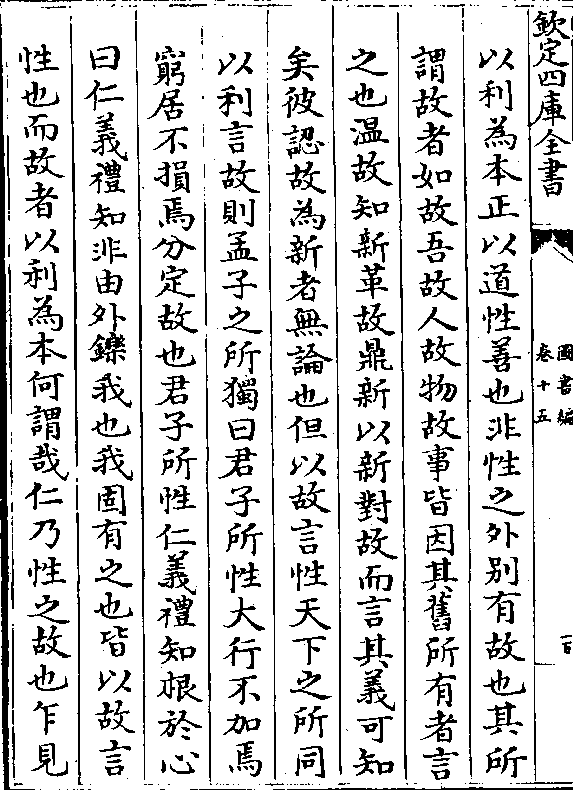 欽定四庫全書
圖書編
卷十五
百
以利為本正以道性善也非性之外别有故也其所
謂故者如故吾故人故物故事皆因其舊所有者言
之也温故知新革故鼎新以新對故而言其義可知
矣彼認故為新者無論也但以故言性天下之所同
以利言故則孟子之所獨曰君子所性大行不加焉
窮居不損焉分定故也君子所性仁義禮知根於心
曰仁義禮知非由外鑠我也我固有之也皆以故言
性也而故者以利為本何謂哉仁乃性之故也乍見